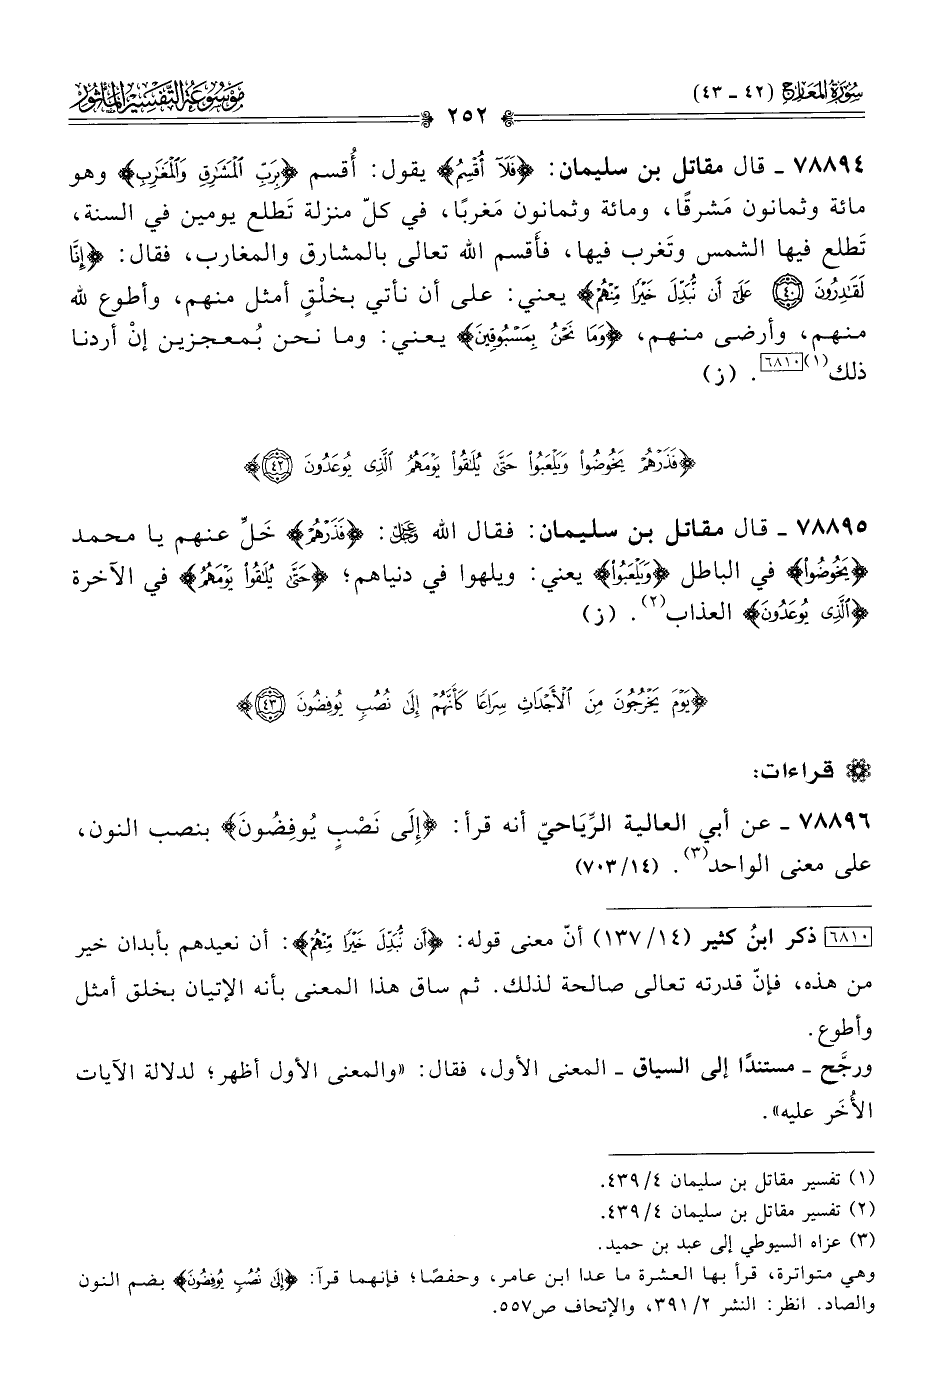 سورة المعارج (٤٢ - ٤٣)
٢٥٢
موسوعة التفسير المأثور
٧٨٨٩٤ - قال مقاتل بن سليمان: ﴿فَلَآ أُقْسِمُ﴾ يقول: أُقسم ﴿بِرَبِّ ٱلْمَشَٰرِقِ وَٱلْمَغَٰرِبِ﴾ وهو
مائة وثمانون مَشرقًا، ومائة وثمانون مَغربًا، في كلّ منزلة تَطلع يومين في السنة،
تَطلع فيها الشمس وتَغرب فيها، فأَقسم الله تعالى بالمشارق والمغارب، فقال: ﴿إِنَّا
لَقَٰدِرُونَ ۝٤٠ عَلَىٰٓ أَن نُّبَدِّلَ خَيْرًا مِّنْهُمْ﴾ يعني: على أن نأتي بخلْقٍ أمثل منهم، وأطوع لله
منهم، وأرضى منهم، ﴿وَمَا نَحْنُ بِمَسْبُوقِينَ﴾ يعني: وما نحن بُمعجزين إنْ أردنا
ذلك(١)[٦٨١٠]. (ز)
﴿فَذَرْهُمْ يَخُوضُوا۟ وَيَلْعَبُوا۟ حَتَّىٰ يُلَٰقُوا۟ يَوْمَهُمُ ٱلَّذِى يُوعَدُونَ ۝٤٢﴾
٧٨٨٩٥ - قال مقاتل بن سليمان: فقال الله ﷿: ﴿فَذَرْهُمْ﴾ خَلِّ عنهم يا محمد
﴿يَخُوضُوا۟﴾ في الباطل ﴿وَيَلْعَبُوا۟﴾ يعني: ويلهوا في دنياهم؛ ﴿حَتَّىٰ يُلَٰقُوا۟ يَوْمَهُمُ﴾ في الآخرة
﴿ٱلَّذِى يُوعَدُونَ﴾ العذاب(٢). (ز)
﴿يَوْمَ يَخْرُجُونَ مِنَ ٱلْأَجْدَاثِ سِرَاعًا كَأَنَّهُمْ إِلَىٰ نُصُبٍ يُوفِضُونَ ۝٤٣﴾
قراءات:
٧٨٨٩٦ - عن أبي العالية الرِّيَاحيّ أنه قرأ: ﴿إِلَى نَصْبٍ يُوفِضُونَ﴾ بنصب النون،
على معنى الواحد(٣). (١٤/ ٧٠٣)
[٦٨١٠] ذكر ابنُ كثير (١٤/ ١٣٧) أنّ معنى قوله: ﴿أَن نُّبَدِّلَ خَيْرًا مِّنْهُمْ﴾: أن نعيدهم بأبدان خير
من هذه، فإنّ قدرته تعالى صالحة لذلك. ثم ساق هذا المعنى بأنه الإتيان بخلق أمثل
وأطوع.
ورجَّح - مستندًا إلى السياق - المعنى الأول، فقال: «والمعنى الأول أظهر؛ لدلالة الآيات
الأُخَر عليه».
(١) تفسير مقاتل بن سليمان ٤/ ٤٣٩.
(٢) تفسير مقاتل بن سليمان ٤/ ٤٣٩.
(٣) عزاه السيوطي إلى عبد بن حميد.
وهي متواترة، قرأ بها العشرة ما عدا ابن عامر، وحفصًا؛ فإنهما قرآ: ﴿إِلَىٰ نُصُبٍ يُوفِضُونَ﴾ بضم النون
والصاد. انظر: النشر ٢/ ٣٩١، والإتحاف ص٥٥٧.